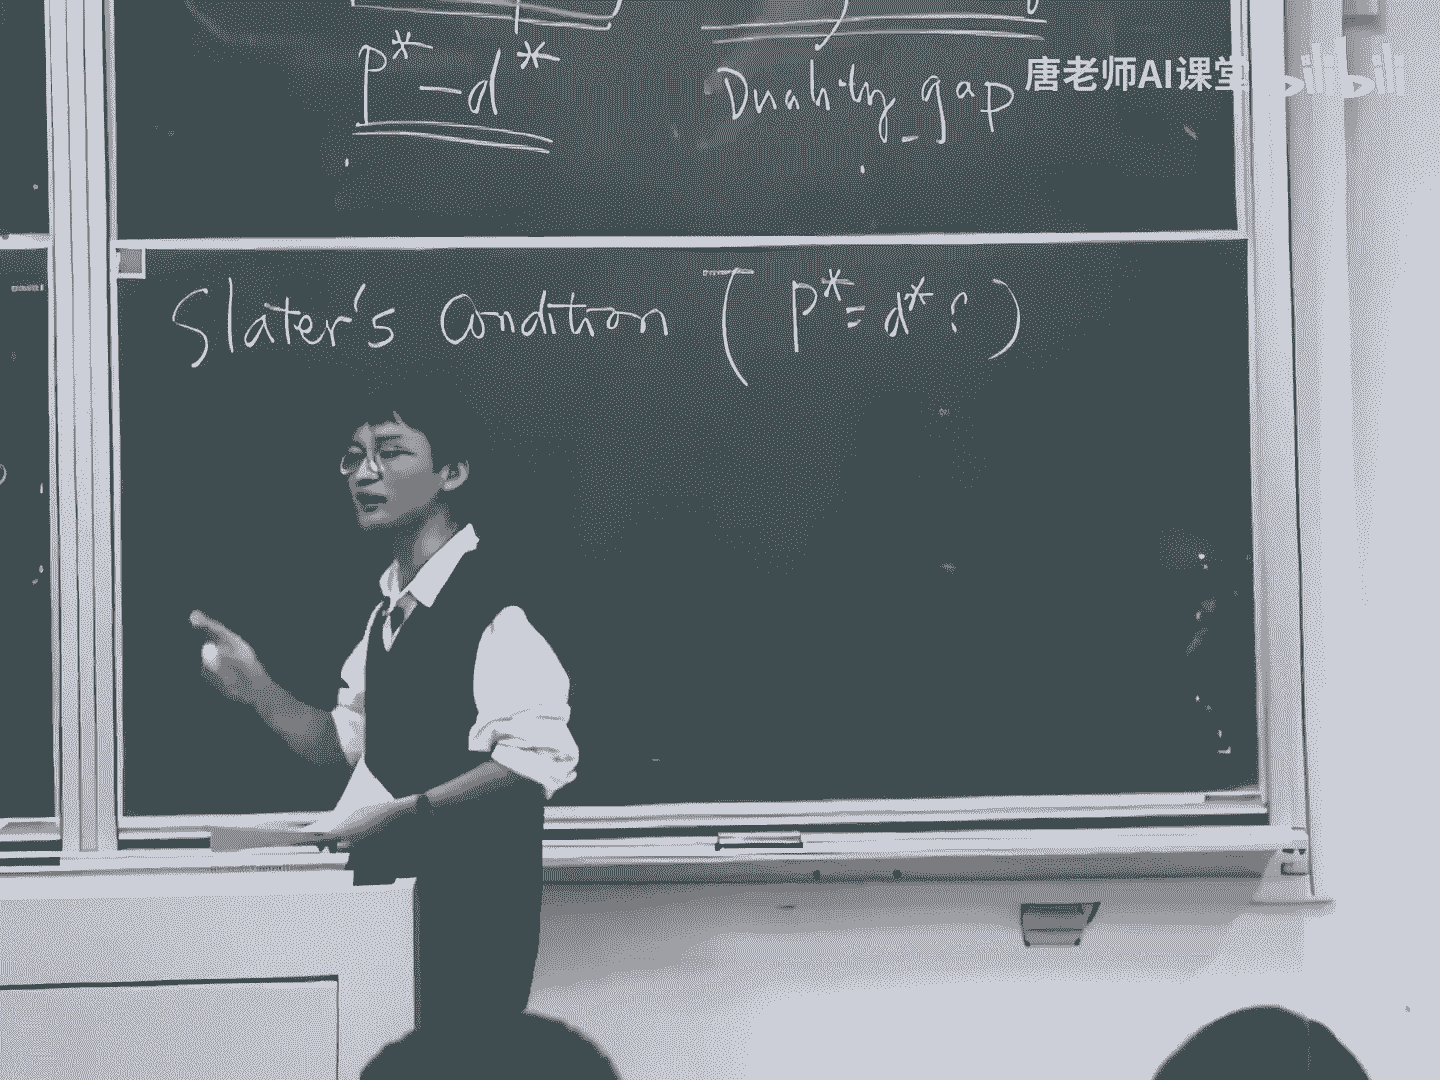 P* - d*
Duality gap
唐老师AI课堂 bilibili
Slater's Condition ( P* = d* ? )